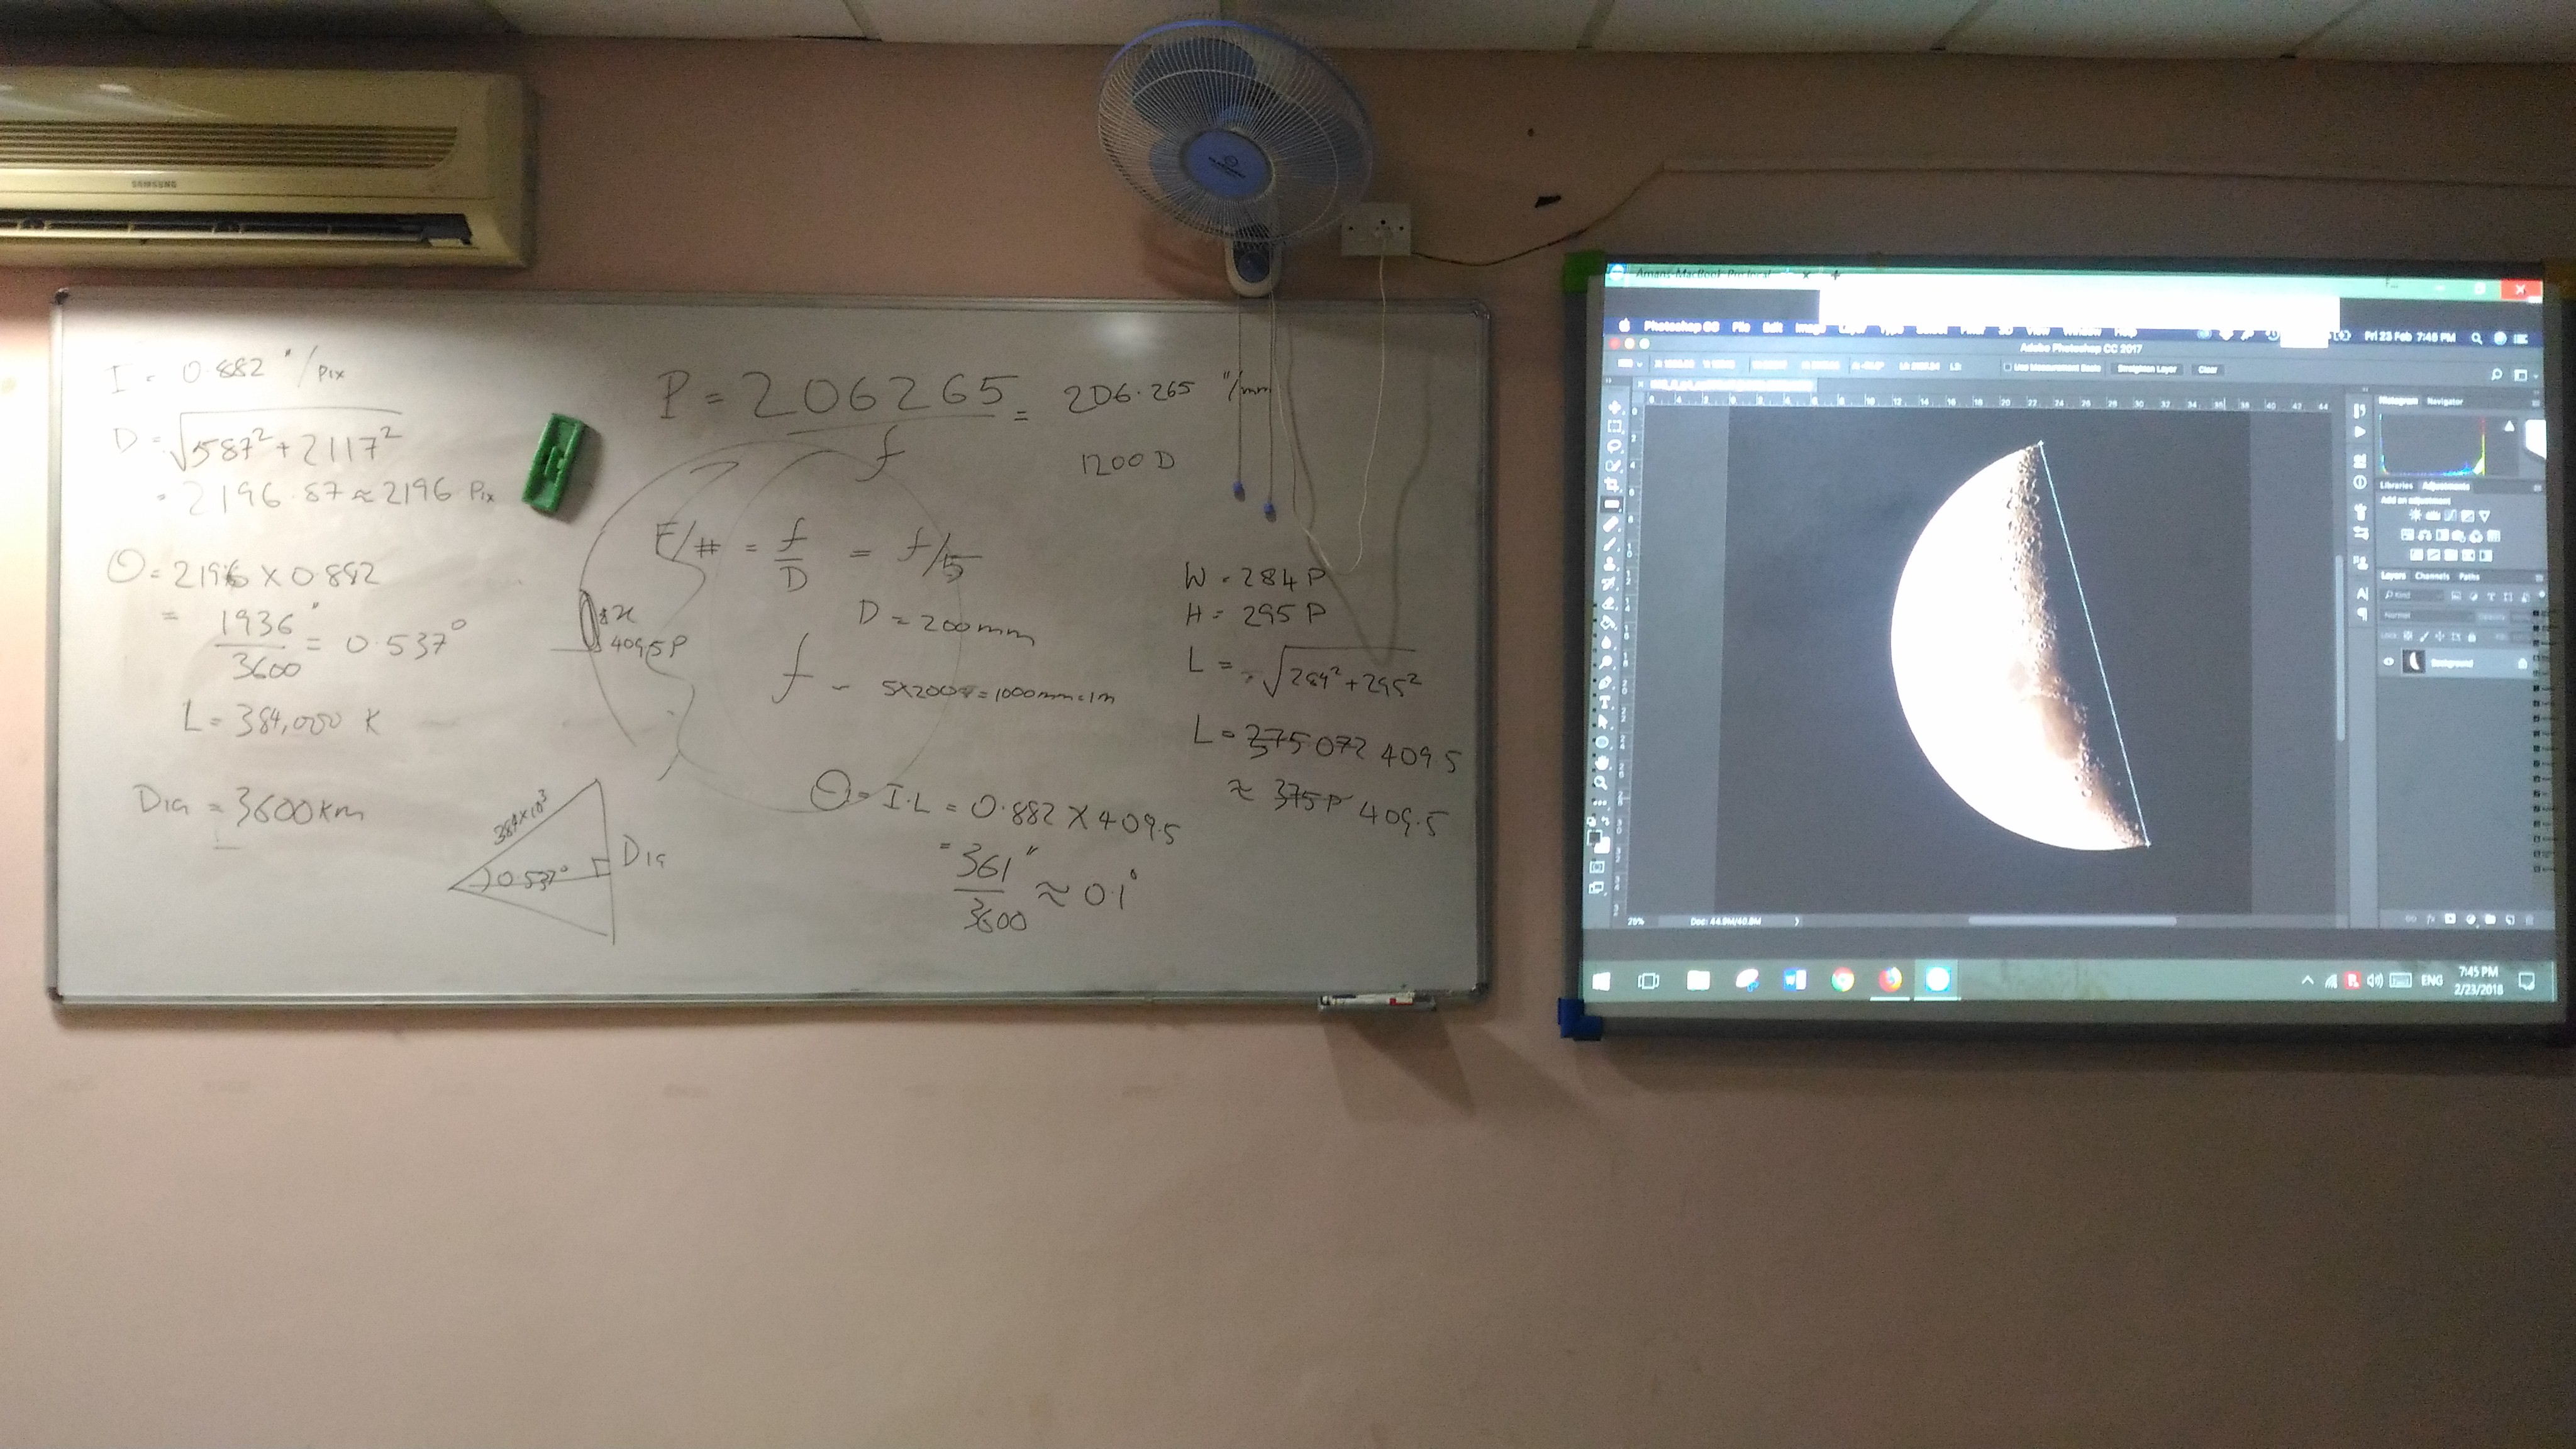 SAMSUNG
I = 0.882 "/Pix
D = √587² + 2117²
= 2196.87 ≈ 2196 Pix
Θ = 2196 X 0.882
= 1936" / 3600 = 0.537°
L = 384,000 K
Dia = 3600 Km
384×10³
0.537°
Dia
P = 206265 / f = 206.265 "/mm
1200 D
F/# = f/D = f/5
D = 200mm
409.5P
f - 5X200 = 1000mm = 1m
Θ = I.L = 0.882 X 409.5
= 361" / 3600 ≈ 0.1°
W = 284 P
H = 295 P
L = √284² + 295²
L = 375072 409.5
≈ 375P 409.5
Photoshop CC File Edit Image Layer Type Select View Window Help
Fri 23 Feb 7:45 PM
Adobe Photoshop CC 2017
Use Measurement Scale Straighten Layer Clear
Histogram Navigator
Libraries Adjustments
Add an adjustment
Layers Channels Paths
Kind
Normal
Lock:
Background
25%
ENG
7:45 PM
2/23/2018